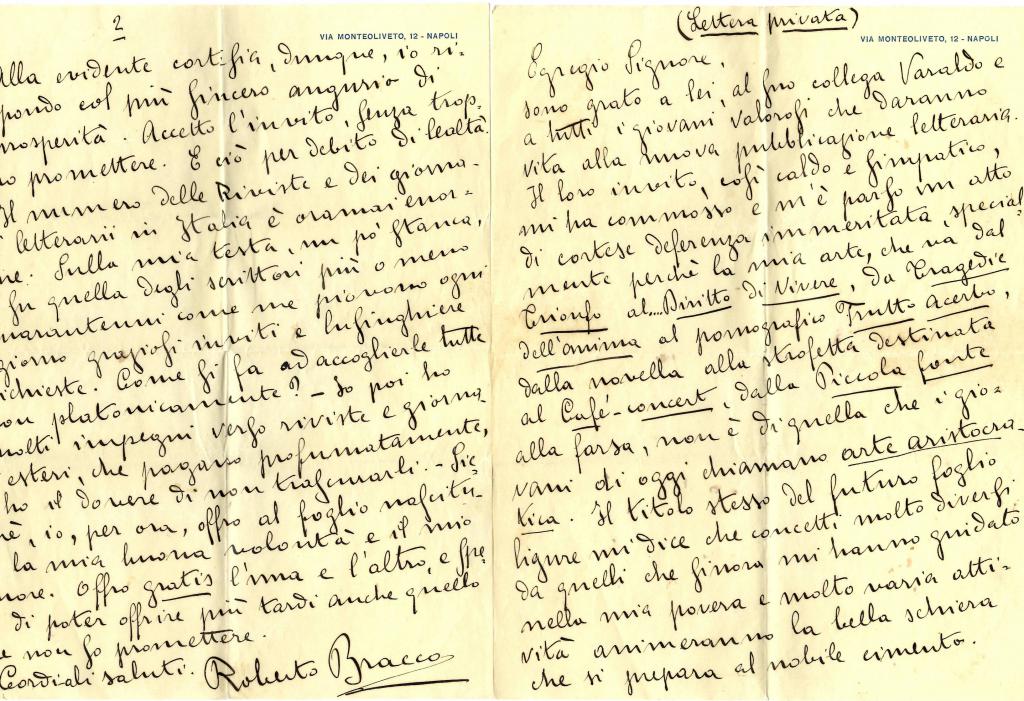 (Lettera privata)
VIA MONTEOLIVETO, 12 - NAPOLI
Egregio Signore,
sono grato a lei, al suo collega Varaldo e
a tutti i giovani valorosi che daranno
vita alla nuova pubblicazione letteraria.
Il loro invito, così caldo e simpatico,
mi ha commosso e m'è parso un atto
di cortese deferenza immeritata, special-
mente perchè la mia arte, che và dal
Trionfo al....Diritto di Vivere, da Tragedie
dell'anima al pornografico Frutto acerbo,
dalla novella alla strofetta destinata
al Café-concert, dalla Piccola fonte
alla farsa, non è di quella che i gio-
vani di oggi chiamano arte aristocra-
tica. Il titolo stesso del futuro foglio
ligure mi dice che concetti molto diversi
da quelli che finora mi hanno guidato
nella mia povera e molto varia atti-
vità animeranno la bella schiera
che si prepara al nobile cimento.
2
VIA MONTEOLIVETO, 12 - NAPOLI
Alla evidente cortesia, dunque, io ri-
pondo col più sincero augurio di
rosperità. Accetto l'invito, senza trop-
o promettere. E ciò per debito di lealtà.
Il numero delle Riviste e dei giorna-
i letterarii in Italia è oramai enor-
me. Sulla mia testa, un pò stanca,
su quella degli scrittori più o meno
uarantenni come me piovono ogni
giorno graziosi inviti e lusinghiere
ichieste. Come si fa ad accoglierle tutte
non platonicamente? – Io poi ho
molti impegni verso riviste e giorna-
esteri, che pagano profumatamente,
ho il dovere di non trascurarli. – Sic-
è, io, per ora, offro al foglio nascitu-
la mia buona volontà e il mio
nore. Offro gratis l'una e l'altro, e spe-
di poter offrire più tardi anche quello
e non so promettere.
Cordiali saluti. Roberto Bracco